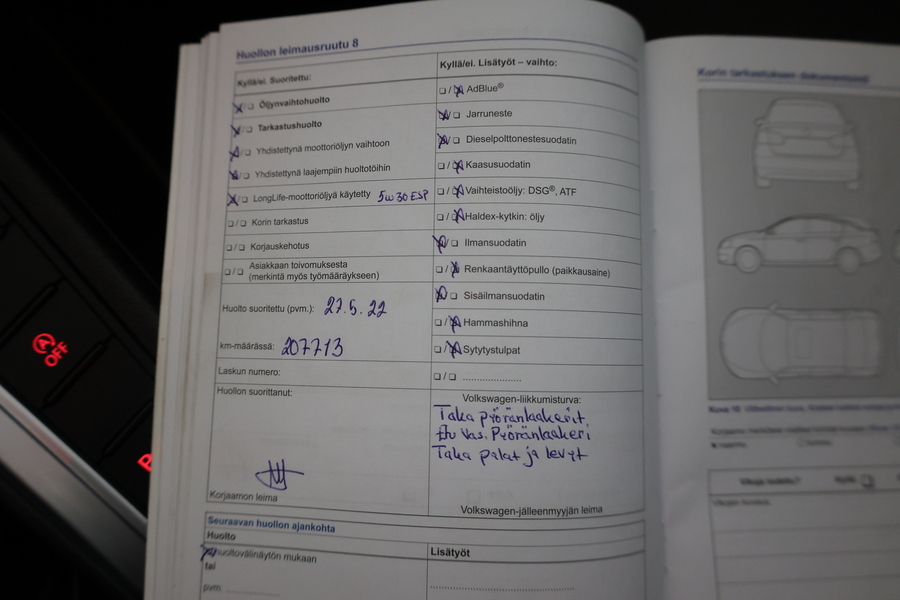 Huollon leimausruutu 8
Kyllä/ei. Suoritettu:
Öljynvaihtohuolto
Tarkastushuolto
Yhdistettynä moottoriöljyn vaihtoon
Yhdistettynä laajempiin huoltotöihin
LongLife-moottoriöljyä käytetty 5w30 ESP
Korin tarkastus
Korjauskehotus
Asiakkaan toivomuksesta
(merkintä myös työmääräykseen)
Huolto suoritettu (pvm.): 27.5.22
km-määrässä: 207713
Laskun numero:
Huollon suorittanut:
Korjaamon leima
Kyllä/ei. Lisätyöt – vaihto:
AdBlue®
Jarruneste
Dieselpolttonestesuodatin
Kaasusuodatin
Vaihteistoöljy: DSG®, ATF
Haldex-kytkin: öljy
Ilmansuodatin
Renkaantäyttöpullo (paikkausaine)
Sisäilmansuodatin
Hammashihna
Sytytystulpat
Volkswagen-liikkumisturva:
Taka pyöränlaakerit,
Etu Vas. Pyöränlaakeri
Taka palat ja levyt
Volkswagen-jälleenmyyjän leima
Seuraavan huollon ajankohta
Huolto
huoltovälinäytön mukaan
tai
pvm
Lisätyöt
Korin tarkastuksen dokumentointi
Kuva 10
A OFF
P